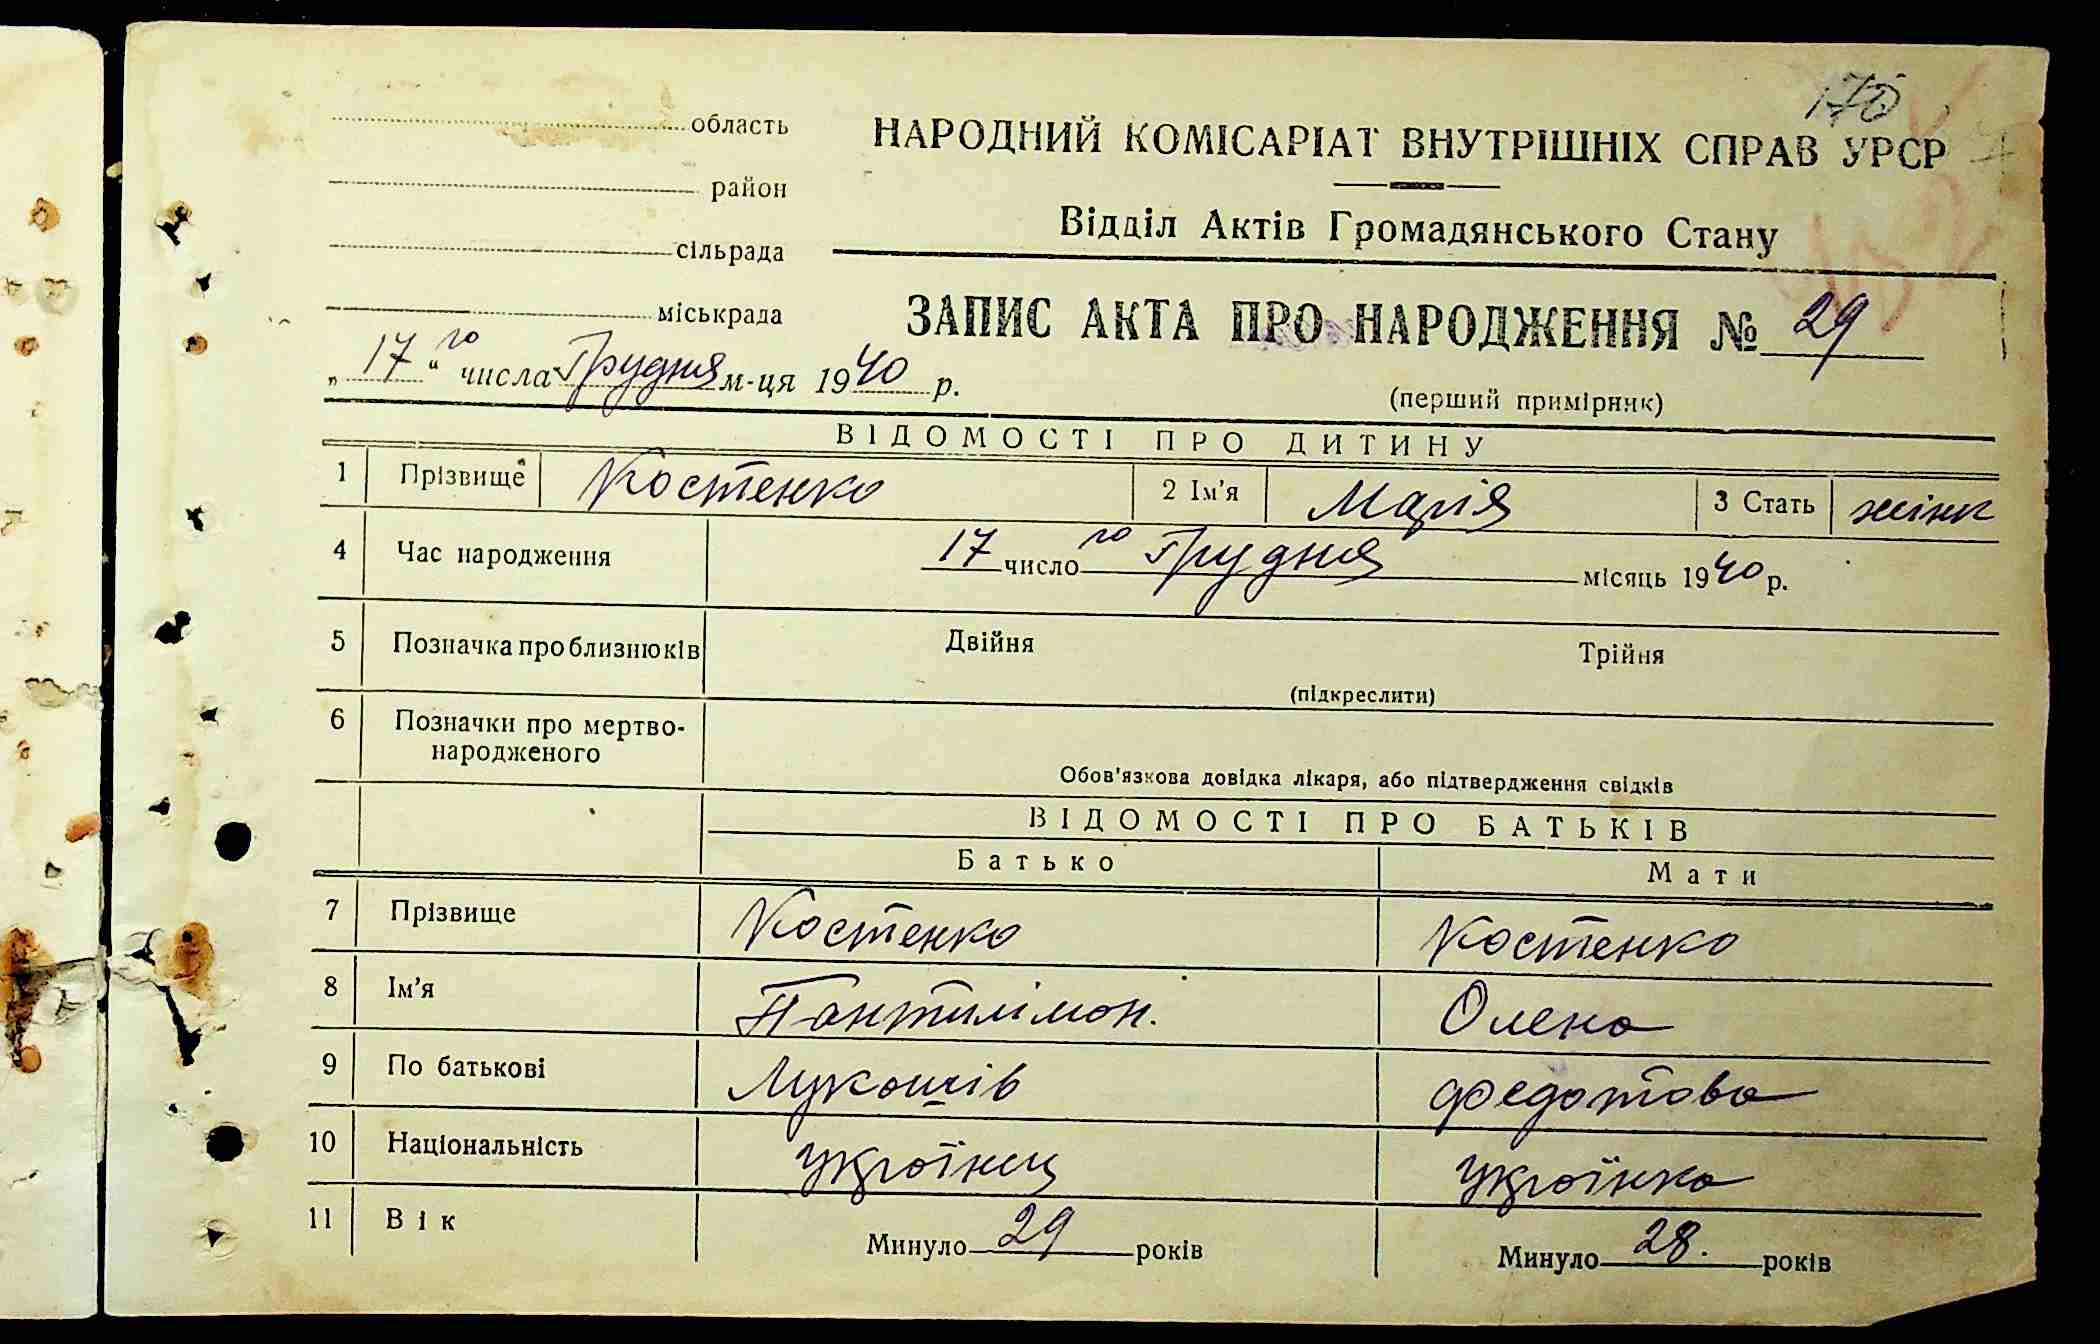 170
область
НАРОДНИЙ КОМІСАРІАТ ВНУТРІШНІХ СПРАВ УРСР
район
Відділ Актів Громадянського Стану
сільрада
міськрада
ЗАПИС АКТА ПРО НАРОДЖЕННЯ № 29
„17го“ числа Грудня м-ця 1940 р.
(перший примірник)
ВІДОМОСТІ ПРО ДИТИНУ
1 Прізвище Костенко 2 Ім'я Марія 3 Стать жінк
4 Час народження 17 число го Грудня місяць 1940 р.
5 Позначка про близнюків Двійня Трійня
(підкреслити)
6 Позначки про мертво-
народженого
Обов'язкова довідка лікаря, або підтвердження свідків
ВІДОМОСТІ ПРО БАТЬКІВ
Батько Мати
7 Прізвище Костенко Костенко
8 Ім'я Пантилімон. Олена
9 По батькові Лукашів Федотова
10 Національність українец українка
11 Вік Минуло 29 років Минуло 28. років